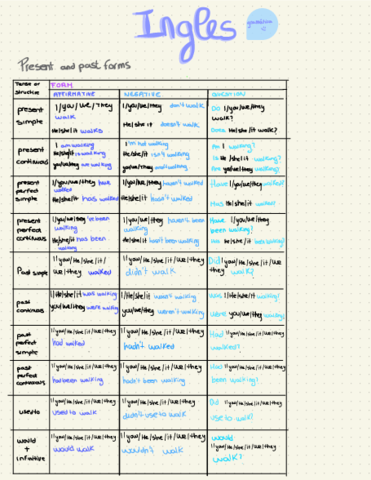 Ingles
gramática
Present and past forms
Tense or structure
FORM
AFFIRMATIVE
NEGATIVE
QUESTION
present simple
I/you/we/they walk
He/she/it walks
I/you/we/they don't walk
He/she/it doesn't walk
Do I/you/we/they walk?
Does He/she/it walk?
present continuous
I am walking
He/she/it is walking
you/we/they are walking
I'm not walking
He/she/it isn't walking
you/we/they aren't walking
Am I walking?
Is He/she/it walking?
Are you/we/they walking?
present perfect simple
I/you/we/they have walked
He/she/it has walked
I/you/we/they haven't walked
He/she/it hasn't walked
Have I/you/we/they walked?
Has He/she/it walked?
present perfect continuous
I/you/we/they 've been walking
He/she/it has been walking
I/you/we/they haven't been walking
He/she/it hasn't been walking
Have I/you/we/they been walking?
Has He/she/it been walking?
Past simple
I/you/He/she/it/we/they walked
I/you/He/she/it/we/they didn't walk
Did I/you/He/she/it/we/they walk?
past continuous
I/He/she/it was walking
you/we/they were walking
I/He/she/it wasn't walking
you/we/they weren't walking
Was I/He/she/it walking?
Were you/we/they walking?
past perfect simple
I/you/He/she/it/we/they had walked
I/you/He/she/it/we/they hadn't walked
Had I/you/He/she/it/we/they walked?
past perfect continuous
I/you/He/she/it/we/they had been walking
I/you/He/she/it/we/they hadn't been walking
Had I/you/He/she/it/we/they been walking?
used to
I/you/He/she/it/we/they used to walk
I/you/He/she/it/we/they didn't use to walk
Did I/you/He/she/it/we/they use to walk?
would + infinitive
I/you/He/she/it/we/they would walk
I/you/He/she/it/we/they wouldn't walk
Would I/you/He/she/it/we/they walk?